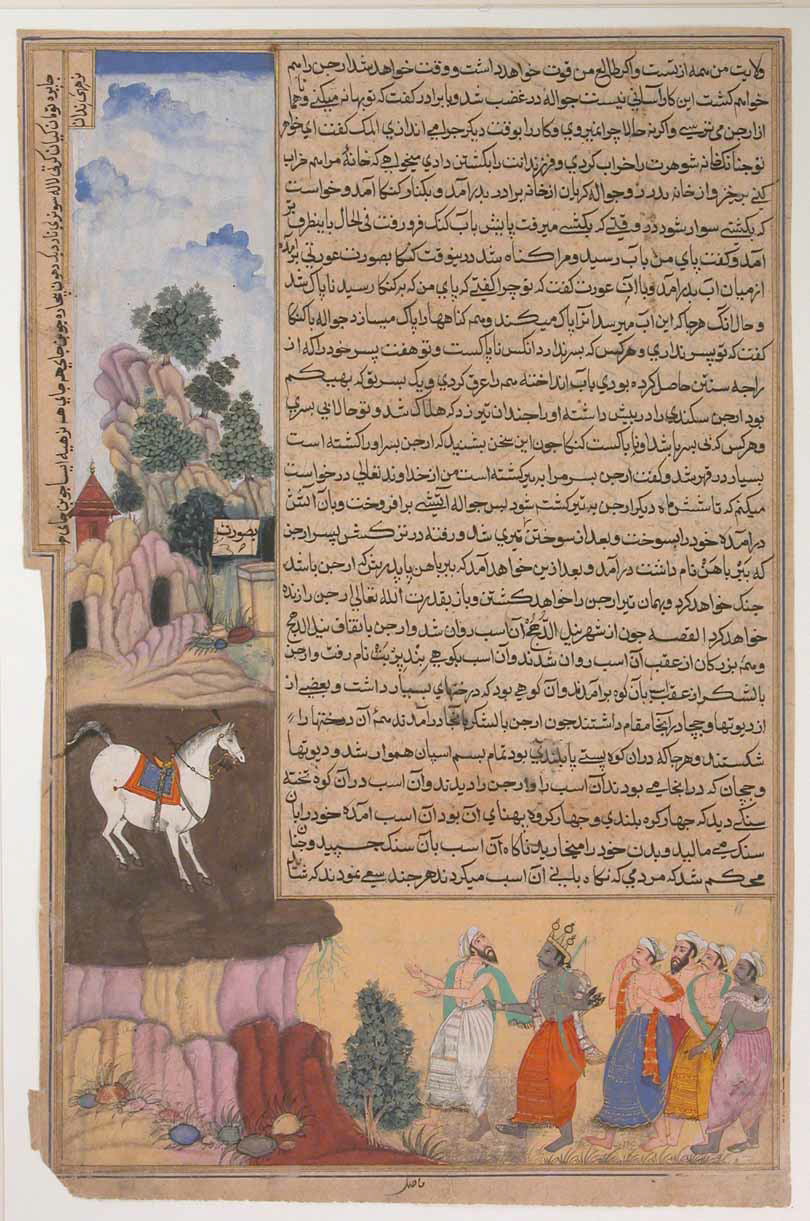 ولایت من همه از تست و اکر طالع من قوت خواهد داشت و وقت خواهد شد ارجن را هم
خواهم کشت این کار آسانی نیست جواله در غضب شد و با برادر کفت که تو بهانه میکنی و همانا
از ارجن می ترسی و اکر نه حالا چرا نمیروی و کار را بوقت دیکر چرا می اندازی المک کفت ای خواهر
تو چنانکه خانه شوهرت را خراب کردی و فرزندانت را بکشتن دادی میخواهی که خانهٔ مرا هم خراب
کنی برخیز و از خانه بدر رو جواله کریان از خانهٔ برادر بدر آمد و بکنار کنکا آمد و خواست
که بکشتی سوار شود در وقتی که بکشتی میرفت پایش بآب کنک فرو رفت فی الحال باینطرف تر
آمد و کفت پای من بآب رسید و مرا کناه شد درینوقت کنکا بصورت عورتی برآمده
از میان آب بدر آمد و با آن عورت کفت که تو چرا کفتی که پای من که بر کنکا رسید ناپاک شد
و حال آنکه هرجا که این آب میرسد آنرا پاک میکند و همه کناهها را پاک میسازد جواله با کنکا
کفت که تو پسر نداری و هر کس که پسر ندارد آنکس ناپاکست و تو هفت پسر خود را که از
راجه سنتن حاصل کرده بودی بآب انداخته همه را غرق کردی و یک پسر تو که بهیکم
بود ارجن سکندی را در پیش داشته او را چندان تیر زد که هلاک شد و تو حالا بی پسری
و هر کس که بی پسر باشد او ناپاکست کنکا چون این سخن بشنید که ارجن پسر او را کشته است
بسیار در قهر شد و کفت ارجن پسر مرا به تیر کشته است من از خداوند تعالی درخواست
میکنم که تا شش ماه دیکر ارجن به تیر کشته شود پس جواله آتشی برافروخت و بآن آتش
درآمده خود را بسوخت و بعد از سوختن تیری شد و رفته در ترکش پسر ارجن
که ببر باهن نام داشت درآمد و بعد ازین خواهد آمد که ببر باهن با پدرش که ارجن باشد
جنک خواهد کرد و بهمان تیر ارجن را خواهد کشتن و باز بقدرت الله تعالی ارجن را زنده
خواهد کرد القصه چون از شهر نیل الدهج آن اسب روان شد و ارجن باتفاق نیل الدهج
و همه بزرکان از عقب آن اسب روان شدند و آن اسب بکوهی بند پربت نام رفت و ارجن
بالشکر از عقب بآن کوه برآمدند و آن کوهی بود که درختهای بسیار داشت و بعضی از
از دیوتها و چچا در آنجا مقام داشتند چون ارجن بالشکر بآنجا درآمدند همهٔ آن درختها را
شکستند و هرجا که در آن کوه پستی یا بلندی بود تمام بسم اسپان هموار شد و دیوتها
و چچان که در آنجا می بودند آن اسب را و ارجن را دیدند و آن اسب در آن کوه تخته
سنکی دید که چهار کروه بلندی و چهار کروه پهنای آن بود آن اسب آمده خود را بآن
سنک می مالید و بدن خود را میخارید ناکاه آن اسب بآن سنک چسپید و چنان
محکم شد که مردمی که نکاهبانی آن اسب میکردند هرچند سعی نمودند که شاید
بصورت
فاضل